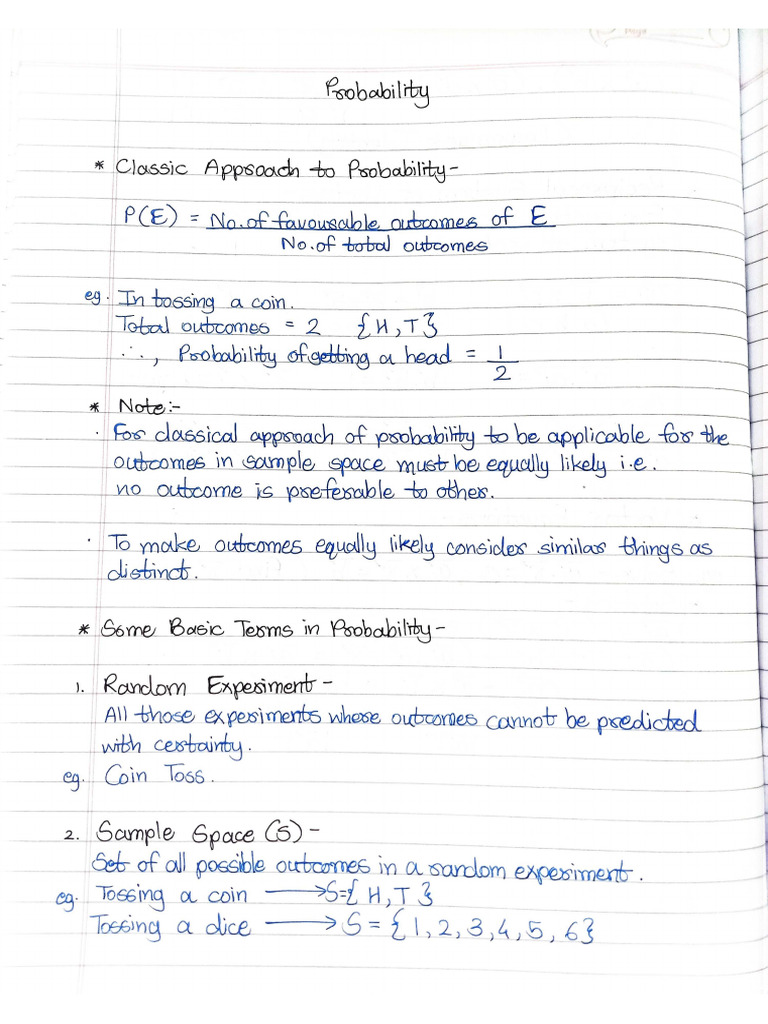 Probability
* Classic Approach to Probability-
P(E) = No. of favourable outcomes of E
No. of total outcomes
eg. In tossing a coin.
Total outcomes = 2 {H, T}
∴, Probability of getting a head = 1
2
* Note:-
· For classical approach of probability to be applicable for the
outcomes in sample space must be equally likely i.e.
no outcome is preferable to other.
· To make outcomes equally likely consider similar things as
distinct.
* Some Basic Terms in Probability-
1. Random Experiment-
All those experiments whose outcomes cannot be predicted
with certainty.
eg. Coin Toss.
2. Sample Space (S)-
Set of all possible outcomes in a random experiment.
eg. Tossing a coin ⟶ S={H, T}
Tossing a dice ⟶ S = {1, 2, 3, 4, 5, 6}